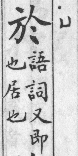 於
語詞又即
也居也